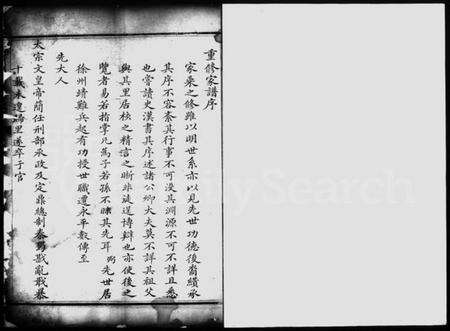 重修家譜序
家乘之修雖以明世系亦以見先世功德後裔纘承
其序不容紊其行事不可沒其淵源不可不詳且悉
也嘗讀史漢書其序述諸公卿大夫莫不詳其祖父
與其里居核之精言之晰非徒逞博辯也亦使後之
覽者易若指掌凡為子若孫不昧其先耳 先世居
徐州靖難兵起有功授世職遷永平數傳至
先大人
太宗文皇帝簡任刑部承政及定鼎總制秦蜀戡亂戢暴
十載未遑歸里遂卒于官
FamilySearch